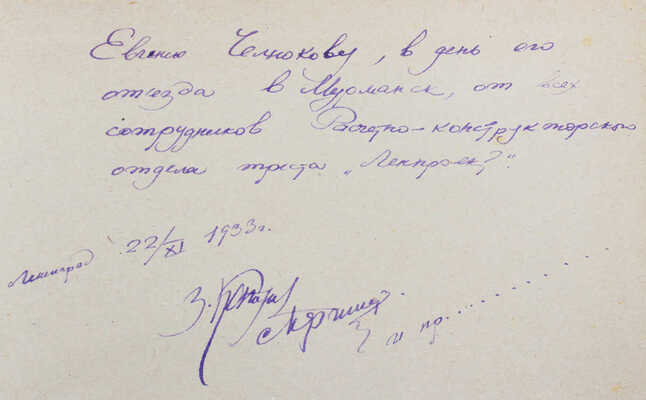 Евгению Челнокову, в день его
отъезда в Мурманск, от всех
сотрудников Расчетно-конструкторского
отдела треста „Ленпроект".
Ленинград 22/XI 1933 г.
З.
и др.........